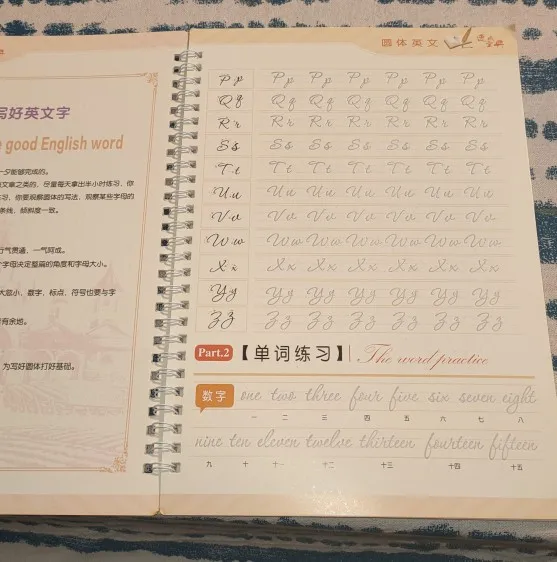 写好英文字
good English word
一夕能够完成的。
文章之类的，尽量每天拿出半小时练习，你
习，你要观察圆体的写法，观察某些字母的
条线，倾斜度一致。
行气贯通，一气呵成。
字母决定整篇的角度和字母大小。
大忽小，数字、标点、符号也要与字
有余地。
为写好圆体打好基础。
圆体英文
P p P p P p P p P p P p P p
Q q Q q Q q Q q Q q Q q Q q
R r R r R r R r R r R r R r
S s S s S s S s S s S s S s
T t T t T t T t T t T t T t
U u U u U u U u U u U u U u
V v V v V v V v V v V v V v
W w W w W w W w W w W w W w
X x X x X x X x X x X x X x
Y y Y y Y y Y y Y y Y y Y y
Z z Z z Z z Z z Z z Z z Z z
Part.2【单词练习】 The word practice
数字 one two three four five six seven eight
一 二 三 四 五 六 七 八
nine ten eleven twelve thirteen fourteen fifteen
九 十 十一 十二 十三 十四 十五